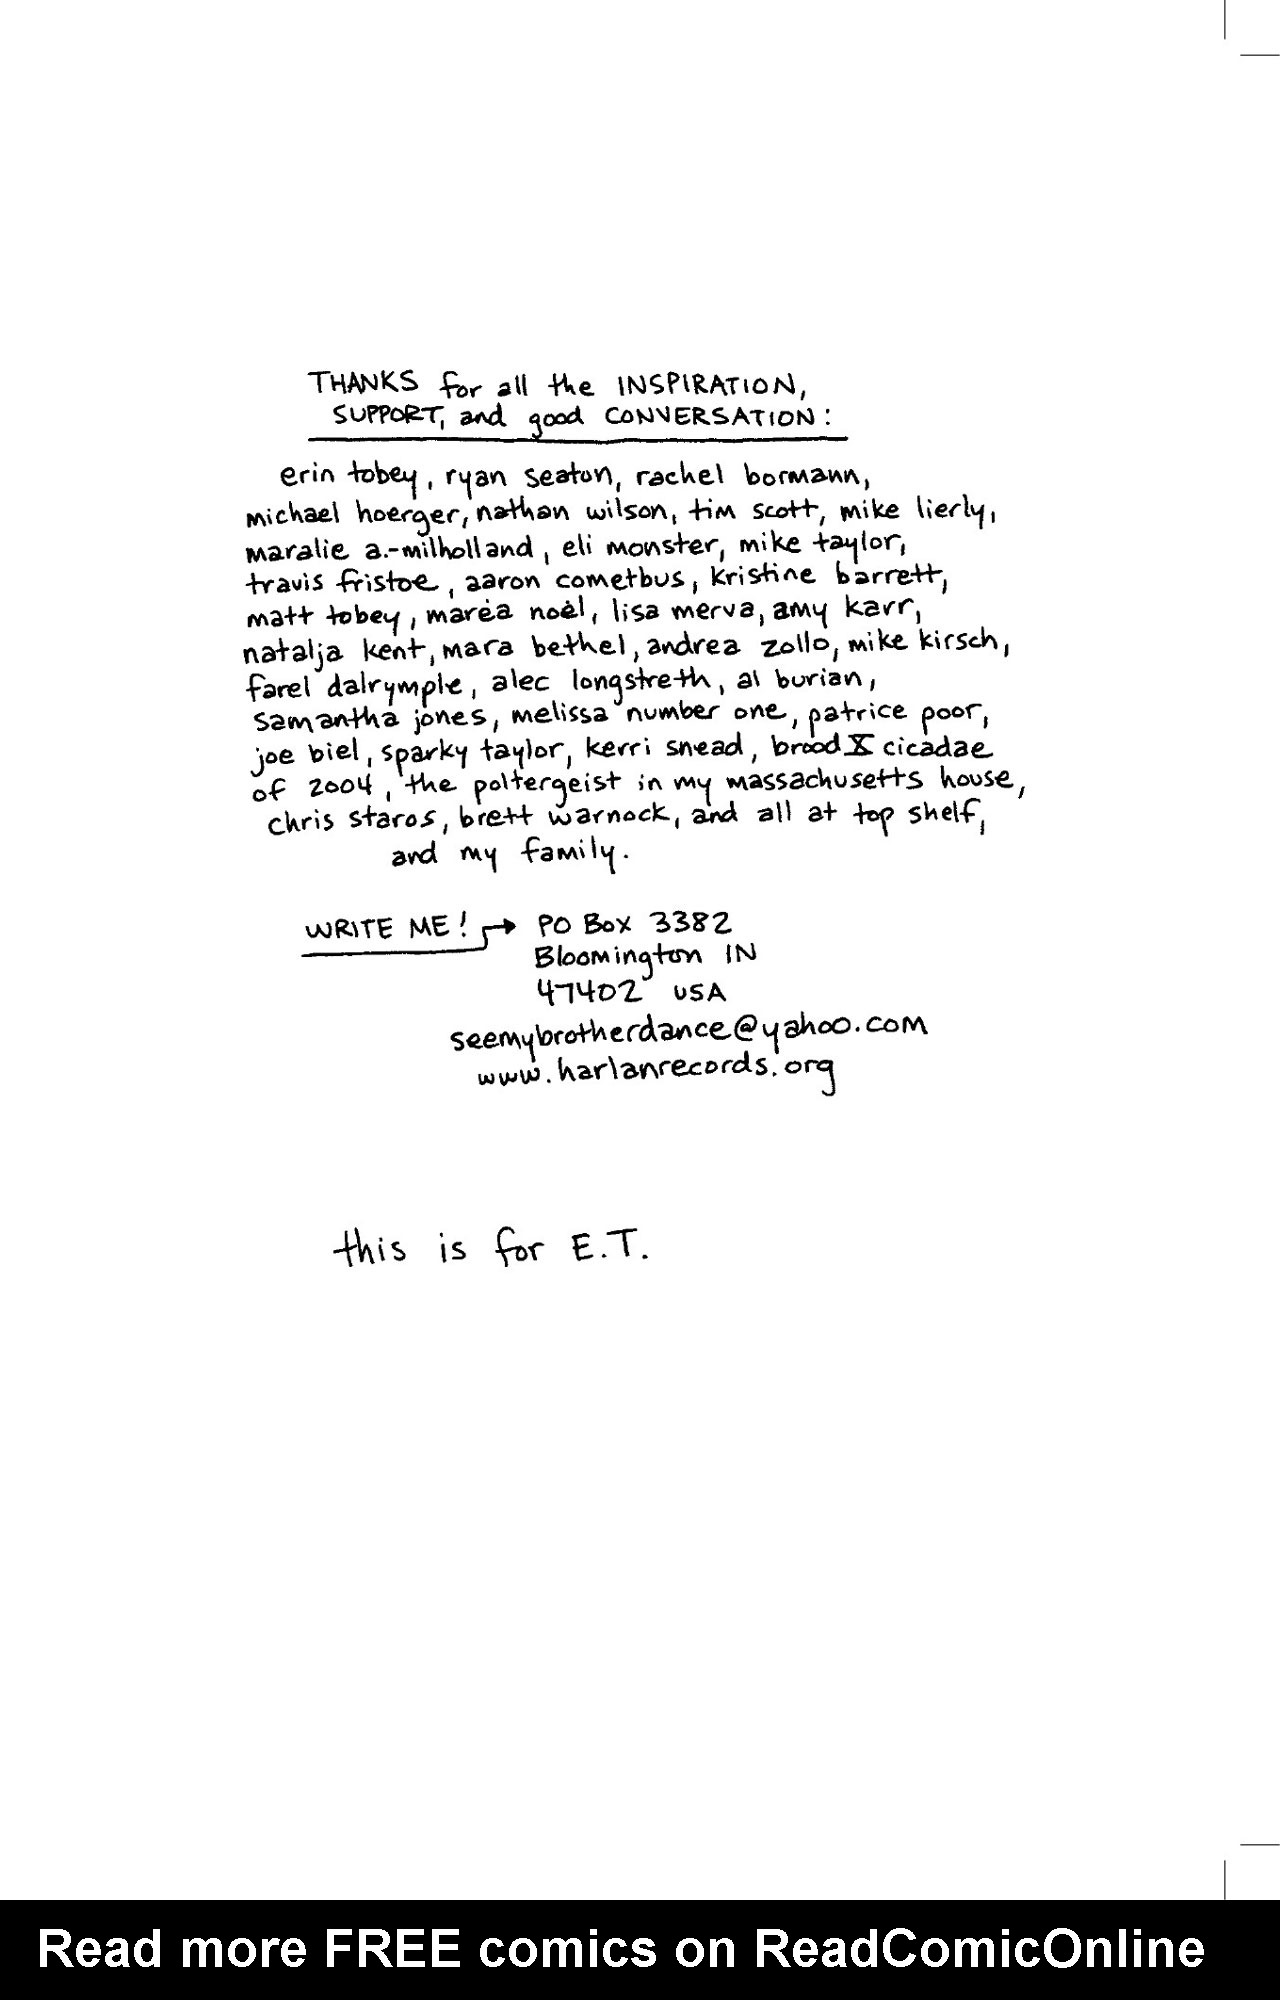 THANKS for all the INSPIRATION,
SUPPORT, and good CONVERSATION:
erin tobey, ryan seaton, rachel bormann,
michael hoerger, nathan wilson, tim scott, mike lierly,
maralie a.-milholland, eli monster, mike taylor,
travis fristoe, aaron cometbus, kristine barrett,
matt tobey, marèa noèl, lisa merva, amy karr,
natalja kent, mara bethel, andrea zollo, mike kirsch,
farel dalrymple, alec longstreth, al burian,
samantha jones, melissa number one, patrice poor,
joe biel, sparky taylor, kerri snead, brood X cicadae
of 2004, the poltergeist in my massachusetts house,
chris staros, brett warnock, and all at top shelf,
and my family.
WRITE ME! → PO Box 3382
Bloomington IN
47402 USA
seemybrotherdance@yahoo.com
www.harlanrecords.org
this is for E.T.
Read more FREE comics on ReadComicOnline